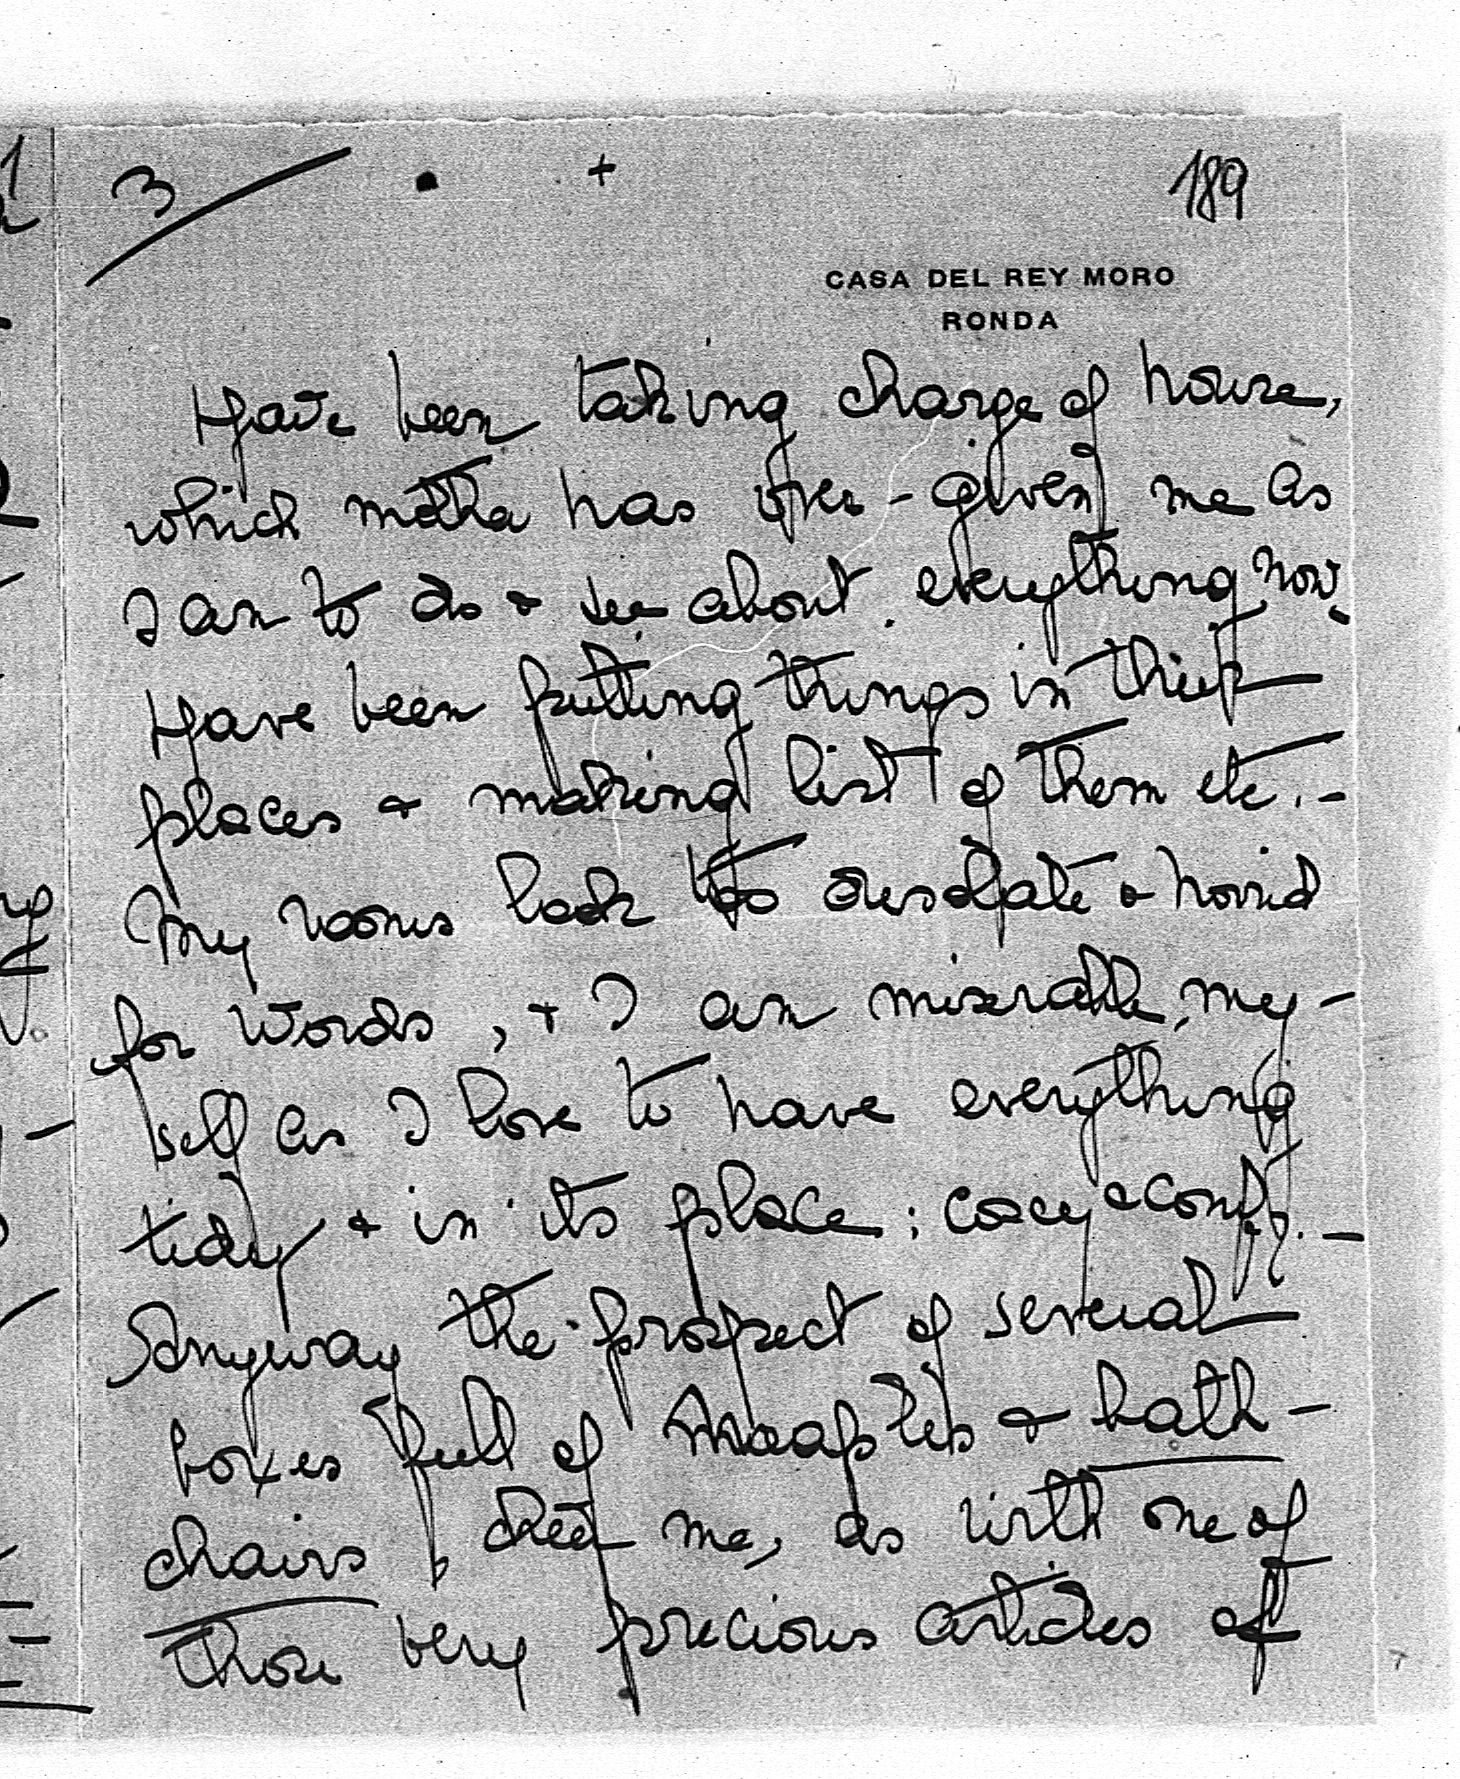 3
189
CASA DEL REY MORO
RONDA
Have been taking charge of house,
which mother has over-given me as
I am to do & see about everything now.
Have been putting things in their
places & making list of them etc. -
My rooms look too desolate & horrid
for words, & I am miserable, my-
self as I love to have everything
tidy & in its place; cosey & comf. -
Anyway the prospect of several
boxes full of Maaples & bath-
chairs, cheer me, as with one of
those very precious articles of